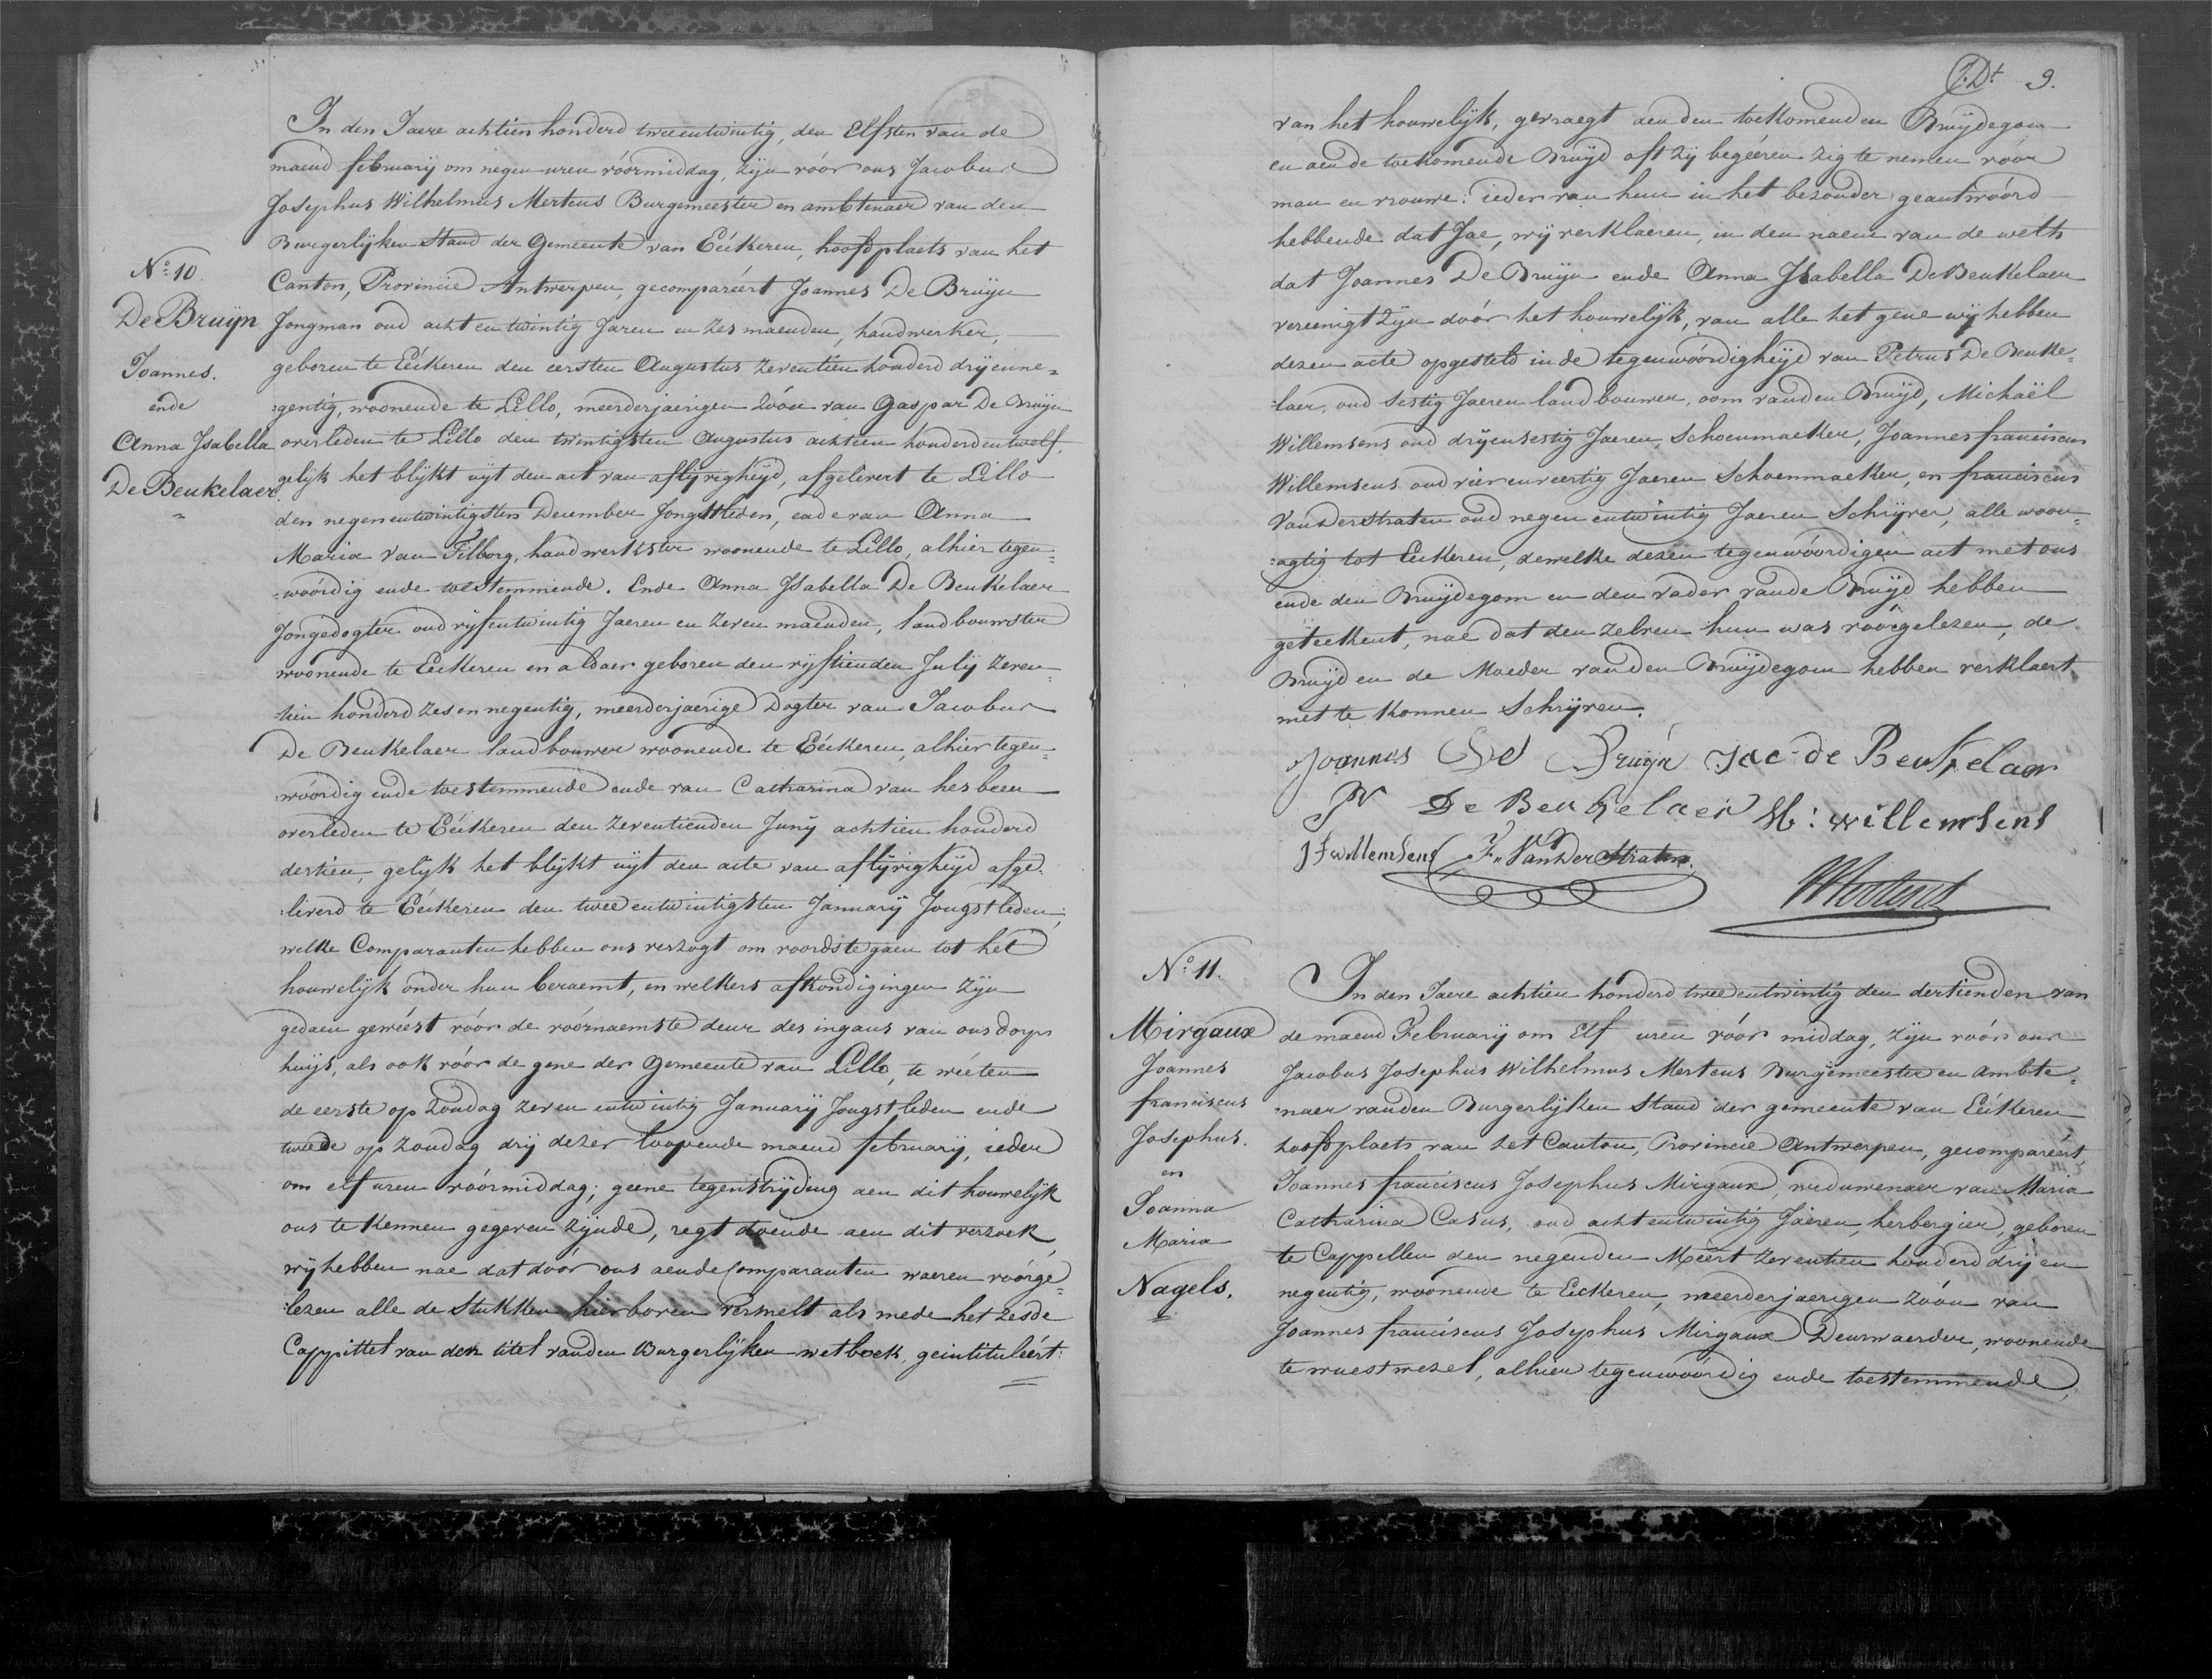 In den Jaere achtien honderd tweentwintig, den Elfsten van de
maend february om negen uren vóórmiddag, zijn vóór ons Jacobus
Josephus Wilhelmus Mertens Burgemeester en ambtenaer van den
Burgerlijken Stand der Gemeente van Eéckeren, hoofdplaets van het
N.º 10.
Canton, Provincie Antwerpen, gecompareért Joannes De Bruijn
De Bruijn
Jongman oud acht en twintig Jaren en zes maenden, handwerker,
Joannes.
geboren te Eéckeren den eersten Augustus zeventien honderd drijenne=
ende
:gentig, woonende te Lillo, meerderjaerigen zóón van Gaspar De Bruijn
Anna Isabella
overleden te Lillo den twintigsten Augustus achtien honderd en twelf,
De Beukelaer
gelijk het blijkt uijt den act van aflijvigheijd, afgelevert te Lillo
den negenentwintigsten December Jongstleden, ende van Anna
Maria van Tilborg, handwerkster woonende te Lillo, alhier tegen=
=wóórdig ende toestemmende. Ende Anna Isabella De Beukelaer
Jongedogter oud vijfentwintig Jaeren en zeven maenden, landbouwster
woonende te Eeckeren en aldaer geboren den vijftienden Julij zeven=
:tien honderd zes en negentig, meerderjaerige Dogter van Jacobus
De Beukelaer landbouwer woonende te Eéckeren, alhier tegen=
:wóórdig ende toestemmende ende van Catharina van hesbeen
overleden te Eéckeren den zeventienden Junij achtien honderd
dertien, gelijk het blijkt uijt den acte van aflijvigheijd afge:
:leverd te Eéckeren den twee entwintigsten Januarij Jongstleden;
welke Comparanten hebben ons verzogt om voords te gaen tot het
houwelijk onder hun beraemt, en welkers afkondigingen zijn
gedaen gewéest vóór de vóórnaemste deur des ingans van ons dorps
huijs, als ook vóór de gene der Gemeente van Lillo, te wéeten
de eerste op Zondag zeven entwintig Januarij Jongstleden ende
twede op zondag drij dezer loopende maend februarij, ieder
om elf uren vóórmiddag; geene tegenstrijding aen dit houwelijk
ons te kennen gegeven zijnde, regt doende aen dit verzoek,
wij hebben nae dat dóór ons aen de Comparanten waeren vóórge=
:lezen alle de Stukken hier boven vermelt als mede het zesde
Cappittel van den titel van den Burgerlijken wetboek, geintituleért:
9.
van het houwelijk, gevraegt aen den toekomenden Bruijdegom
en aen de toekomende Bruijd oft zij begéeren zig te nemen vóór
man en vrouwe: ieder van hun in het bezonder geantwóórd
hebbende dat Jae, wij verklaeren, in den naem van de weth
dat Joannes De Bruijn ende Anna Isabella De Beukelaer
vereenigt zijn dóór het houwelijk, van alle het gene wij hebben
dezen acte opgesteld in de tegenwóórdigheijd van Petrus De Beuke=
:laer, oud Sestig Jaeren landbouwer, oom van den Bruijd, Michaël
Willemsens oud drijensestig Jaeren, Schoenmaeker, Joannes franciscus
Willemsens oud vierenveertig Jaeren Schoenmaeker, en franciscus
VanderStraten oud negen entwintig Jaeren Schrijver, alle woon=
:agtig tot Eeckeren, dewelke dezen tegenwóórdigen act met ons
ende den Bruijdegom en den vader van de Bruijd hebben
geteekent, nae dat den zelven hun was vóórgelezen, de
Bruijd en de Moeder van den Bruijdegom hebben verklaert
niet te konnen Schrijven.
Joannes De Bruijn Jac de Beukelaer
De Beukelaer M: willemsens
J F willemsens F. VanderStraten
Mertens
N.º 11.
In den Jaere achtien honderd tweeentwintig den dertienden van
Mirgaux
de maend February om Elf uren vóór middag, zijn vóór ons
Joannes
Jacobus Josephus Wilhelmus Mertens Burgemeester en ambte=
franciscus
:naer van den Burgerlijken Stand der gemeente van Eéckeren
Josephus.
hoofdplaets van het Canton, Provincie Antwerpen, gecompareért
en
Joannes franciscus Josephus Mirgaux, weduwenaer van Maria
Joanna
Catharina Casus, oud acht entwintig Jaeren, herbergier, geboren
Maria
te Cappellen den negenden Méert zeventien honderd drij en
Nagels.
negentig, woonende te Eeckeren, meerderjaerigen zóón van
Joannes franciscus Josephus Mirgaux Deurwaerder, woonende
te wuestwezel, alhier tegenwóórdig ende toestemmende,